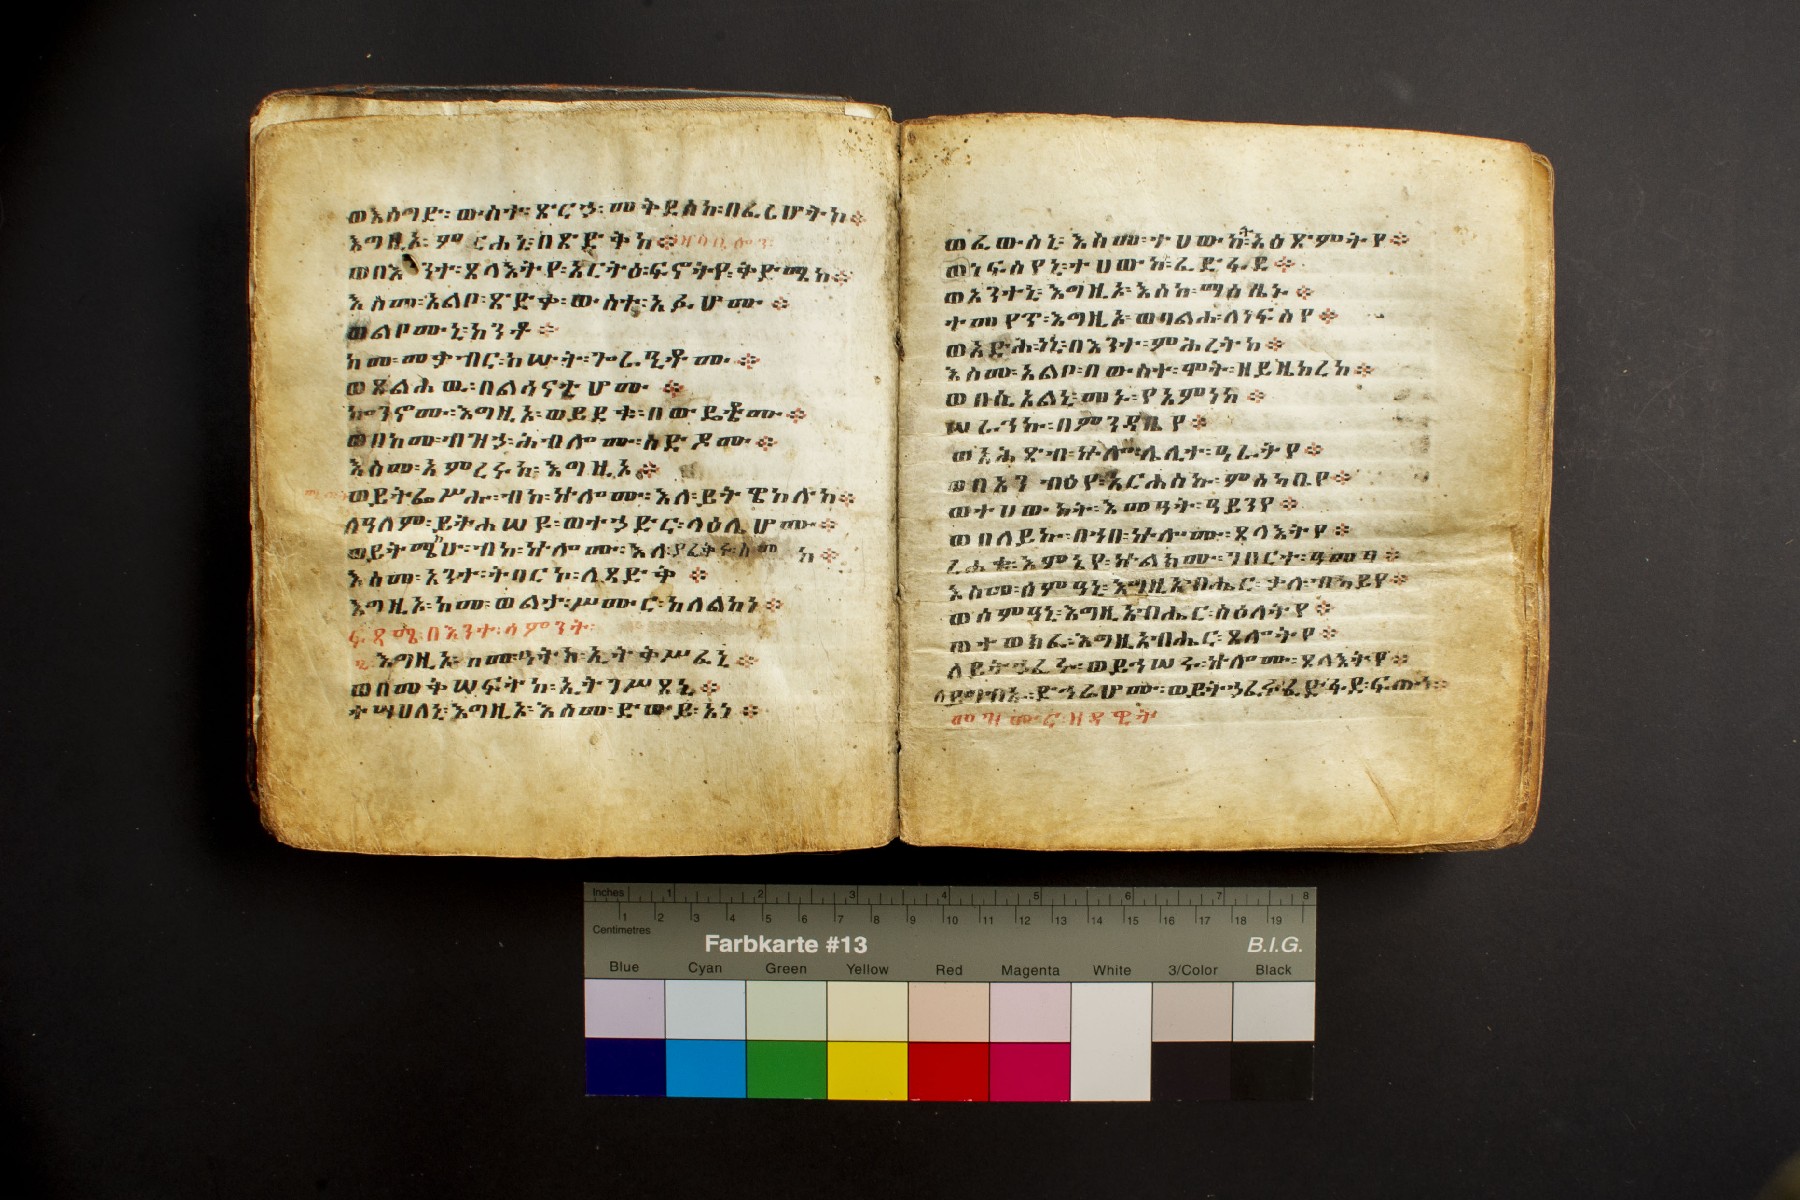 ወእሰግድ፡ ውስተ፡ ጽርሓ፡ መቅደስከ፡ በፈሪሆትከ፨
እግዚኦ፡ ምርሐኒ፡ በጽድቅከ፨
ወበእንተ፡ ጸላእትየ፡ አርትዕ፡ ፍኖትየ፡ ቅድሜከ፨
እስመ፡ አልቦ፡ ጽድቀ፡ ውስተ፡ አፉሆሙ፨
ወልቦሙኒ፡ ከንቶ፨
ከመ፡ መቃብር፡ ከሡት፡ ጐራዒቶሙ፨
ወጸልሐዉ፡ በልሳናቲሆሙ፨
ኰንኖሙ፡ እግዚኦ፡ ወይደቁ፡ በውዴቶሙ፨
ወበከመ፡ ብዝኃ፡ ሕብሎሙ፡ ስድዶሙ፨
እስመ፡ አምረሩከ፡ እግዚኦ፨
ወይትፌሥሑ፡ ብከ፡ ኵሎሙ፡ እለ፡ ይትዌከሉከ፨
ለዓለም፡ ይትሐሠዩ፡ ወተኃድር፡ ላዕሌሆሙ፨
ወይትሜክሁ፡ ብከ፡ ኵሎሙ፡ እለ፡ ያፈቅሩ፡ ስመከ፨
እስመ፡ አንተ፡ ትባርኮ፡ ለጻድቅ፨
እግዚኦ፡ ከመ፡ ወልታ፡ ሥሙር፡ ከለልከነ፨
ፍጻሜ፡ በእንተ፡ ሳምንት፡
እግዚኦ፡ በመዓትከ፡ ኢትቅሥፈኒ፨
ወበመቅሠፍትከ፡ ኢትገሥጸኒ፨
ተሣሀለኒ፡ እግዚኦ፡ እስመ፡ ድውይ፡ አነ፨
ወፈውሰኒ፡ እስመ፡ ተሀውካ፡ አዕጽምትየ፨
ወነፍስየኒ፡ ተሀውከት፡ ፈድፋደ፨
ወአንተኒ፡ እግዚኦ፡ እስከ፡ ማእዜኑ፨
ተመየጥ፡ እግዚኦ፡ ወባልሓ፡ ለነፍስየ፨
ወአድኅነኒ፡ በእንተ፡ ምሕረትከ፨
እስመ፡ አልቦ፡ በውስተ፡ ሞት፡ ዘይዜከረከ፨
ወበሲኦልኒ፡ መኑ፡ የአምነከ፨
ሠራኅኩ፡ በምንዳቤየ፨
ወአሐጽብ፡ ኵሎ፡ ሌሊተ፡ ዓራትየ፨
ወበአንብዕየ፡ አርሐስኩ፡ ምስካቢየ፨
ወተሀውከት፡ እመዓት፡ ዓይንየ፨
ወበለይኩ፡ በኀበ፡ ኵሎሙ፡ ጸላእትየ፨
ረሐቁ፡ እምኔየ፡ ኵልክሙ፡ ገበርተ፡ ዓመፃ፨
እስመ፡ ሰምዓኒ፡ እግዚአብሔር፡ ቃለ፡ ብካይየ፨
ወሰምዓኒ፡ እግዚአብሔር፡ ስዕለትየ፨
ወተወክፈ፡ እግዚአብሔር፡ ጸሎትየ፨
ለይትኀፈሩ፡ ወይኅሠሩ፡ ኵሎሙ፡ ጸላእትየ፨
ለይግብኡ፡ ድኅሬሆሙ፡ ወይትኃፈሩ፡ ፈድፋደ፡ ፍጡነ፨
መዝሙር፡ ዘዳዊት